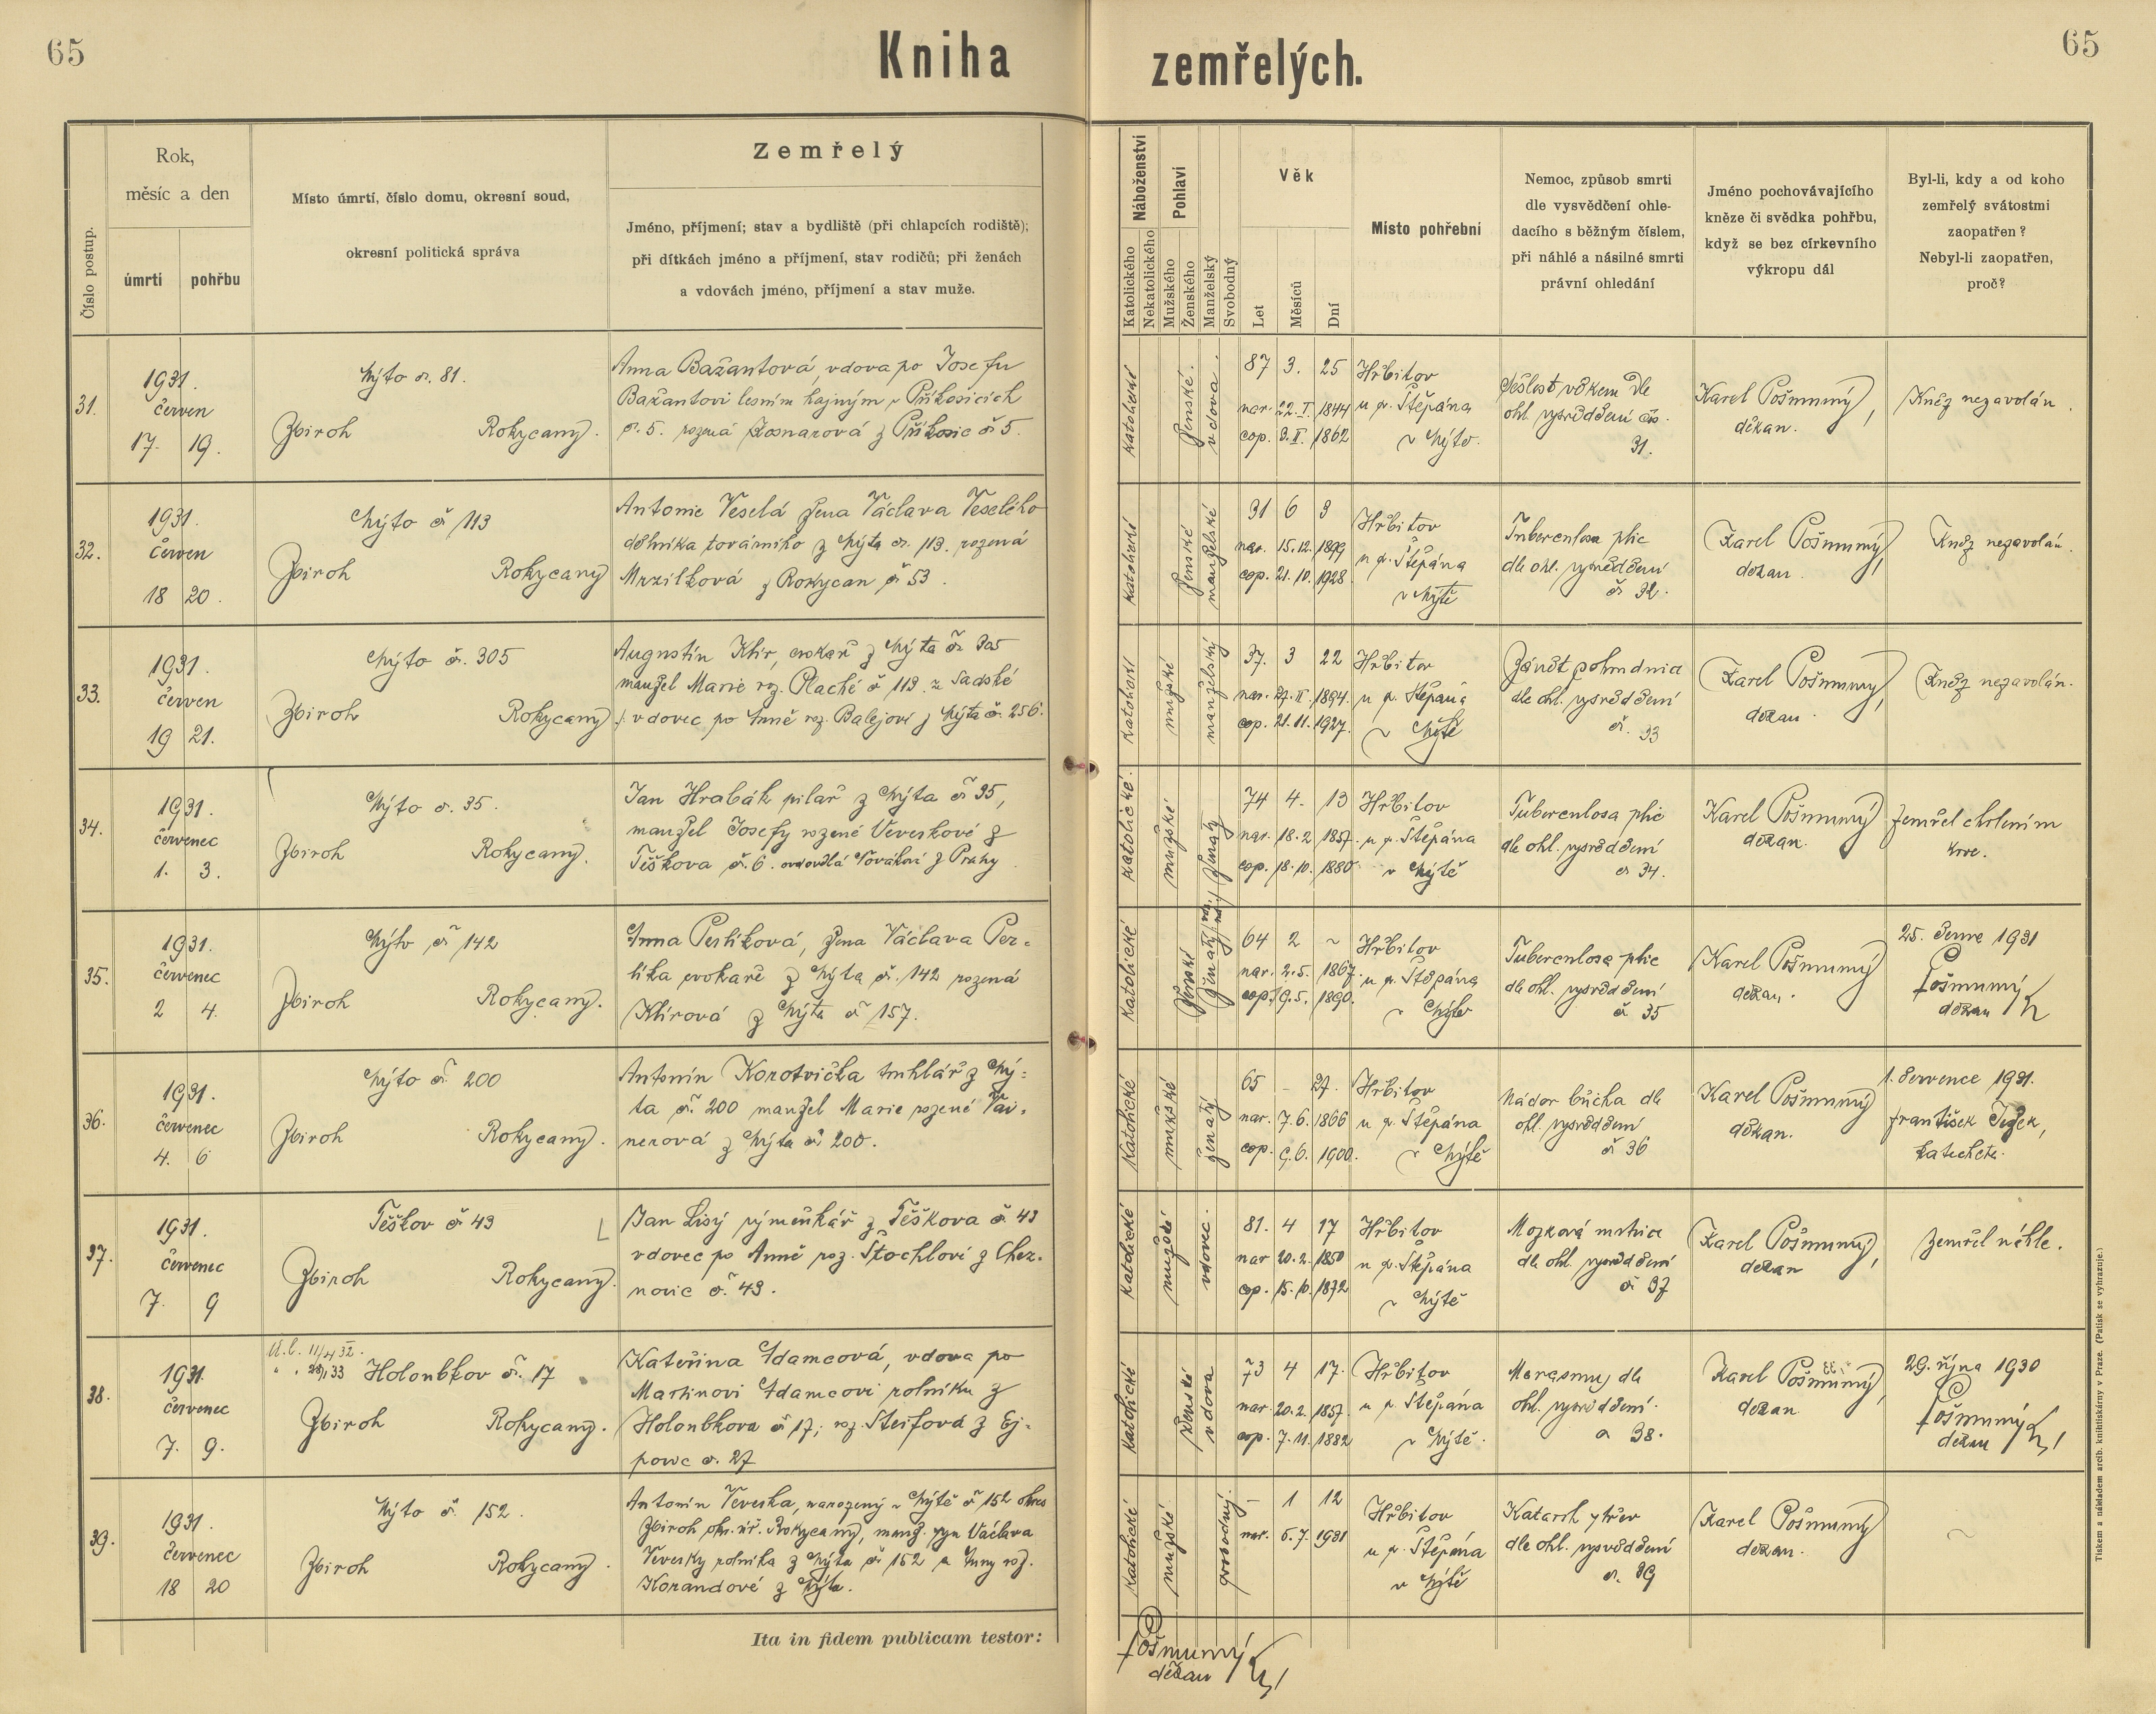 65
Kniha zemřelých.
65
Číslo postup.
Rok,
měsíc a den
úmrtí
pohřbu
Místo úmrtí, číslo domu, okresní soud,
okresní politická správa
Zemřelý
Jméno, příjmení; stav a bydliště (při chlapcích rodiště);
při dítkách jméno a příjmení, stav rodičů; při ženách
a vdovách jméno, příjmení a stav muže.
Náboženství
Katolického
Nekatolického
Pohlaví
Mužského
Ženského
Manželský
Svobodný
Věk
Let
Měsíců
Dní
Místo pohřební
Nemoc, způsob smrti
dle vysvědčení ohle-
dacího s běžným číslem,
při náhlé a násilné smrti
právní ohledání
Jméno pochovávajícího
kněze či svědka pohřbu,
když se bez církevního
výkropu dál
Byl-li, kdy a od koho
zemřelý svátostmi
zaopatřen?
Nebyl-li zaopatřen,
proč?
31.
1931.
červen
17. 19.
Mýto č. 81.
Zbiroh Rokycany.
Anna Bažantová, vdova po Josefu
Bažantovi lesním hajným v Příkosicích
č. 5. rozená Kosnarová z Příkosic č 5.
katolické
ženské.
vdova.
87 3. 25
nar. 22. I. 1844
cop. 3. II. 1862
Hřbitov
u sv. Štěpána
v Mýto.
Sešlost věkem dle
ohl. vysvědčení čís.
31.
Karel Pošmurný,
děkan.
Kněz nezavolán.
32.
1931.
červen
18 20.
Mýto č 113
Zbiroh Rokycany
Antonie Veselá žena Václava Veselého
dělníka továrního z Mýta č. 113. rozená
Mrzilková z Rokycan č 53.
katolické
ženské
manželské
31 6 3
nar. 15. 12. 1899
cop. 21. 10. 1928
Hřbitov
u sv. Štěpána
v Mýtě
Tuberculosa plic
dle ohl. vysvědčení
č 32.
Karel Pošmurný,
děkan.
Kněz nezavolán.
33.
1931.
červen
19 21.
Mýto č. 305
Zbiroh Rokycany
Augustin Klír, cvokař z Mýta č. 305
manžel Marie roz. Plaché č 113. z Sadské
/: vdovec po Anně roz. Balejovi z Mýta č. 256.
katolické
mužské
manželský
37. 3 22
nar. 27. II. 1894.
cop. 21. 11. 1927.
Hřbitov
u sv. Štěpána
v Mýtě
Zánět pohrudnice
dle ohl. vysvědčení
č. 33
Karel Pošmurný,
děkan.
Kněz nezavolán.
34.
1931.
červenec
1. 3.
Mýto č. 35.
Zbiroh Rokycany.
Jan Hrabák pilař z Mýta č 35,
manžel Josefy rozené Veverkové z
Těškova č. 6. ovdovělá Nováková z Prahy
katolické.
mužské
ženatý
74 4. 13
nar. 18. 2 1857.
cop. 18. 10. 1880.
Hřbitov
u sv. Štěpána
v Mýtě
Tuberculosa plic
dle ohl. vysvědčení
č 34.
Karel Pošmurný
děkan.
Zemřel chrlením
krve.
35.
1931.
červenec
2 4.
Mýto č 142
Zbiroh Rokycany.
Anna Perlíková, žena Václava Per-
líka cvokaře z Mýta č. 142 rozená
Klírová z Mýta č 157.
katolické
ženské
64 2 ~
nar. 2. 5. 1867.
cop. 19. 5. 1890.
Hřbitov
u sv. Štěpána
v Mýtě
Tuberculosa plic
dle ohl. vysvědčení
č 35
Karel Pošmurný
děkan.
25. června 1931
Pošmurný
děkan
36.
1931.
červenec
4. 6
Mýto č. 200
Zbiroh Rokycany.
Antonín Korotvička truhlář z Mý-
ta č. 200 manžel Marie rozené Vai-
nerová z Mýta č. 200.
katolické
mužské
ženatý
65 – 27.
nar. 7. 6. 1866
cop. 9. 6. 1900.
Hřbitov
u sv. Štěpána
v Mýtě
Nádor břicha dle
ohl. vysvědčení
č 36
Karel Pošmurný
děkan.
1. července 1931.
František Ježek,
katecheta.
37.
1931.
červenec
7. 9
Těškov č 43
Zbiroh Rokycany.
Jan Lisý výměnkář z Těškova č. 43
vdovec po Anně roz. Štochlovi z Chez-
novic č. 43.
katolické
mužské
vdovec.
81. 4 17
nar 20. 2. 1850
cop. 15. 10. 1872
Hřbitov
u sv. Štěpána
v Mýtě
Mozková mrtvice
dle ohl. vysvědčení
č. 37
Karel Pošmurný,
děkan
Zemřel náhle.
38.
1931
červenec
7. 9.
Holoubkov č. 17
Zbiroh Rokycany.
Kateřina Adamcová, vdova po
Martinovi Adamcovi rolníku z
Holoubkova č 17; roz. Steifová z Ej-
powic č. 27
katolické
ženské
vdova
73 4 17.
nar. 20. 2. 1857.
cop. 7. 11. 1882
Hřbitov
u sv. Štěpána
v Mýtě.
Marasmus dle
ohl. vysvědčení.
č 38.
Karel Pošmurný,
děkan
29. října 1930
Pošmurný
děkan
39.
1931.
červenec
18 20
Mýto č. 152.
Zbiroh Rokycany.
Antonín Veverka, narozený v Mýtě č 152 okres
Zbiroh okr. úř. Rokycany, manž. syn Václava
Veverky rolníka z Mýta č. 152 a Anny roz.
Korandové z Mýta.
katolické
mužské.
svobodný.
– 1 12
nar. 6. 7. 1931
Hřbitov
u sv. Štěpána
v Mýtě
Katarrh střev
dle ohl. vysvědčení
č. 39
Karel Pošmurný
děkan.
~
Ita in fidem publicam testor:
Pošmurný
děkan
Tiskem a nákladem arcib. knihtiskárny v Praze. (Patisk se vyhrazuje.)